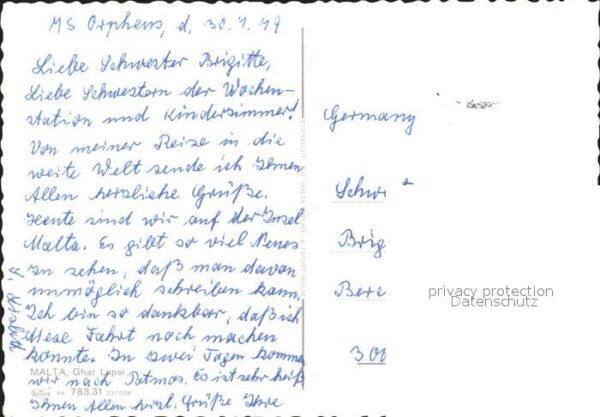 MS Orpheus, d. 30.7.79
Liebe Schwester Brigitte,
Liebe Schwestern der Wochen-
station und Kinderzimmer!
Von meiner Reise in die
weite Welt sende ich Ihnen
Allen herzliche Grüße.
Heute sind wir auf der Insel
Malta. Es gibt so viel Neues
zu sehen, daß man davon
unmöglich schreiben kann.
Ich bin so dankbar, daß ich
diese Fahrt noch machen
konnte. In zwei Tagen komme
wir nach Patmos. Es ist sehr heiß
Ihnen Allen herzl. Grüße Ihre
MALTA, Ghar Lapsi
783.31
Germany
Schw
Brig
Berc
300
privacy protection
Datenschutz